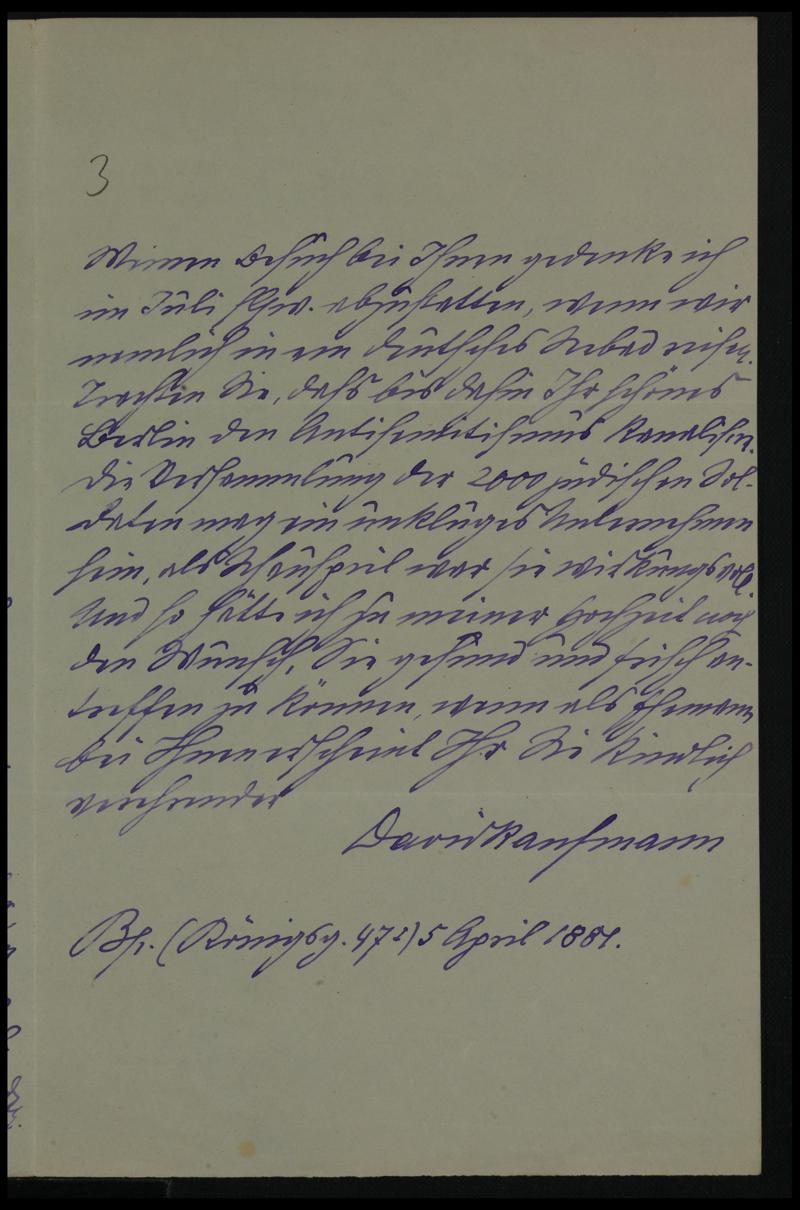 3
Meinen Besuch bei Ihnen gedenke ich
im Juli abzustatten, wenn wir
nemlich in ein deutsches Seebad reisen.
Trachten Sie, dass bis dahin Ihr schönes
Berlin den Antisemitismus kanalisire.
Die Versammlung der 2000 jüdischen Sol-
daten mag ein unkluges Unternehmen
sein, als Schauspiel war sie wirkungsvoll.
Und so hätte ich zu meiner Hochzeit noch
den Wunsch, Sie gesund und frisch an-
treffen zu können, wenn als Ehemann
bei Ihnen erscheint Ihr Sie kindlich
verehrender
David Kaufmann
Bp. (Königsg. 47 I) 5 April 1881.